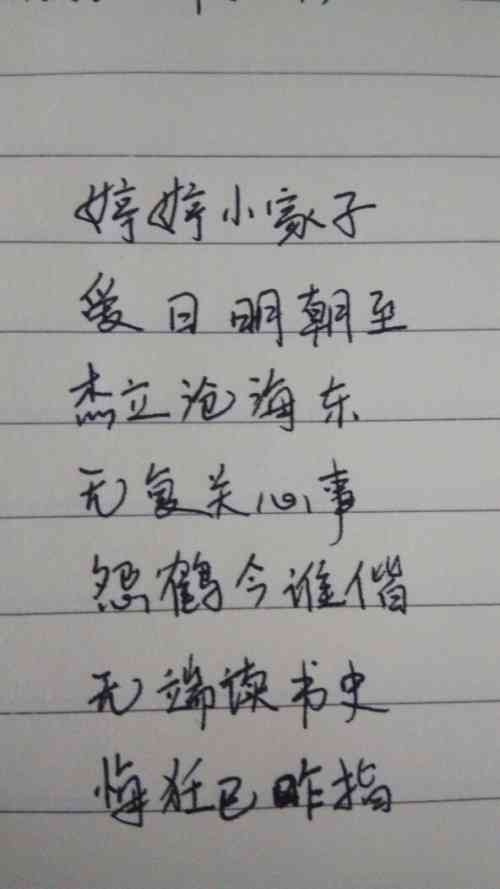 婷婷小家子
爱日明朝至
杰立沧海东
无复关心事
怨鹤今谁偕
无端读书史
悔狂已昨指